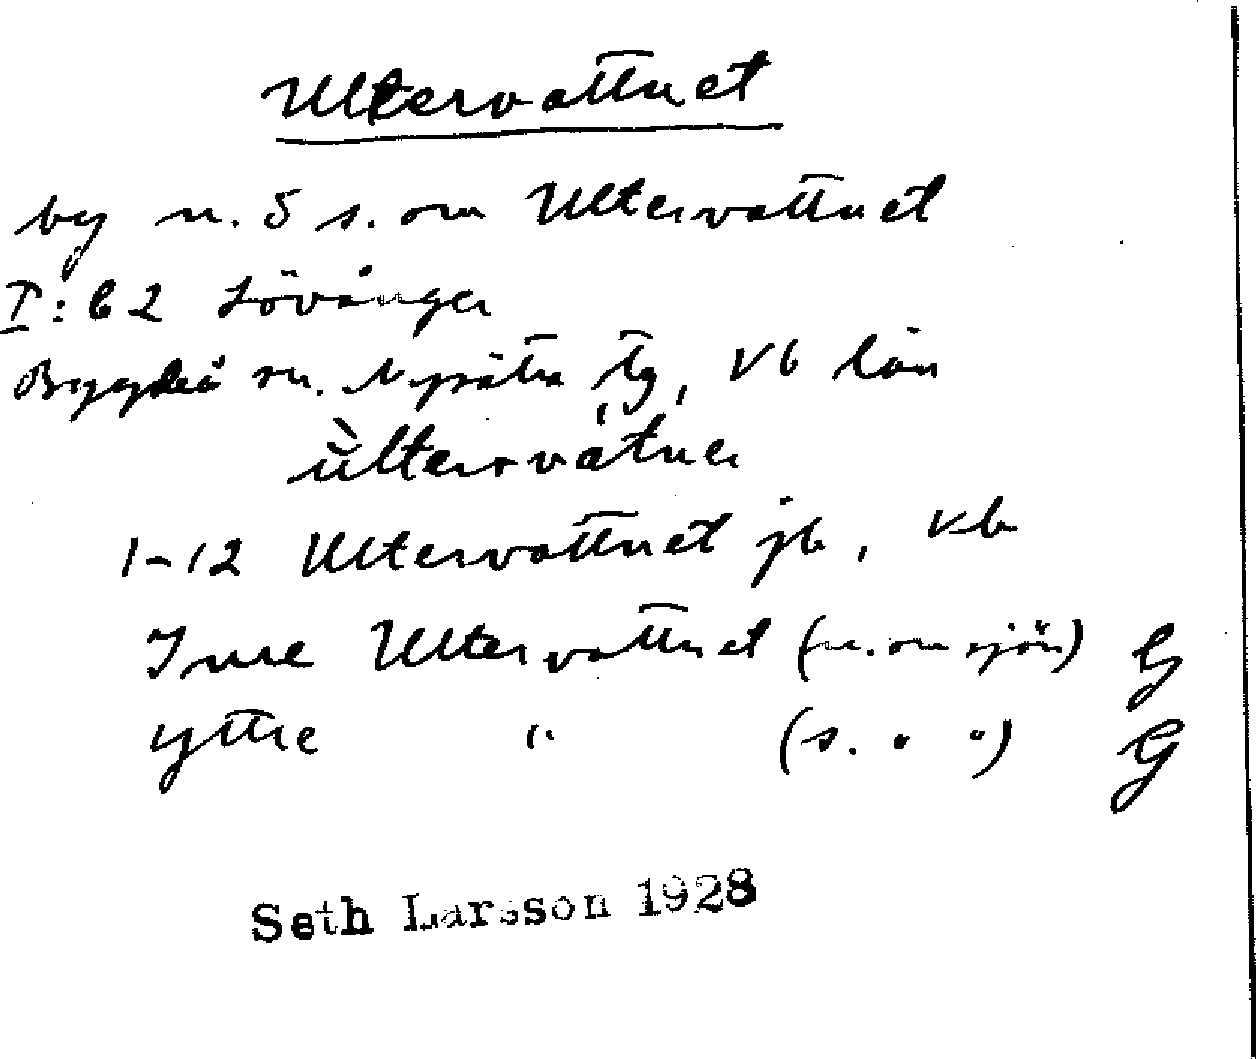 Ultervattnet
by n. o s. om Ultervattnet
I: b2 Lövånger
Bygdeå sn. Nysätra tg, Vb län
ùltərvátnə
1-12 Ultervattnet jb, Vb
Inre Ultervattnet (n. om sjön) G
yttre " (s. " ") G
Seth Larsson 1928